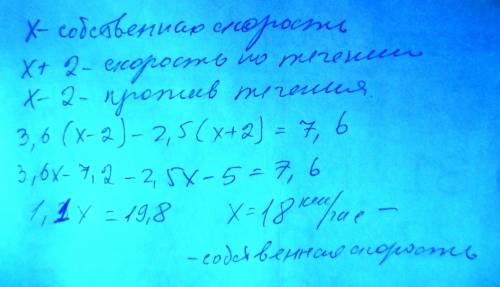 х- собственная скорость
х+ 2 - скорость по течении
х- 2 - против течения.
3,6 (х-2) - 2,5(х+2) = 7,6
3,6х-7,2-2,5х-5=7,6
1,1х = 19,8 х=18 км/час -
-собственная скорость